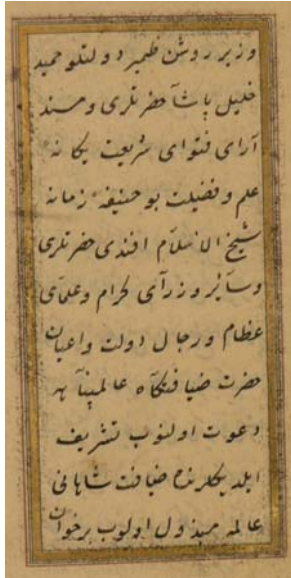 وزير روشن ضمير دولتلو حميد
خليل پاشا حضرتلرى ومسند
آراى فتواى شريعت يكانه
علم وفضيلت بو حنيفهٔ زمانه
شيخ الاسلام افندى حضرتلرى
وسائر وزراى كرام وعلماى
عظام ورجال دولت واعيان
حضرت ضيافتكاه عالمپناهه
دعوت اولنوب تشريف
ايلدكلرنده ضيافت شاهانى
عالمه مبذول اولوب برخوان